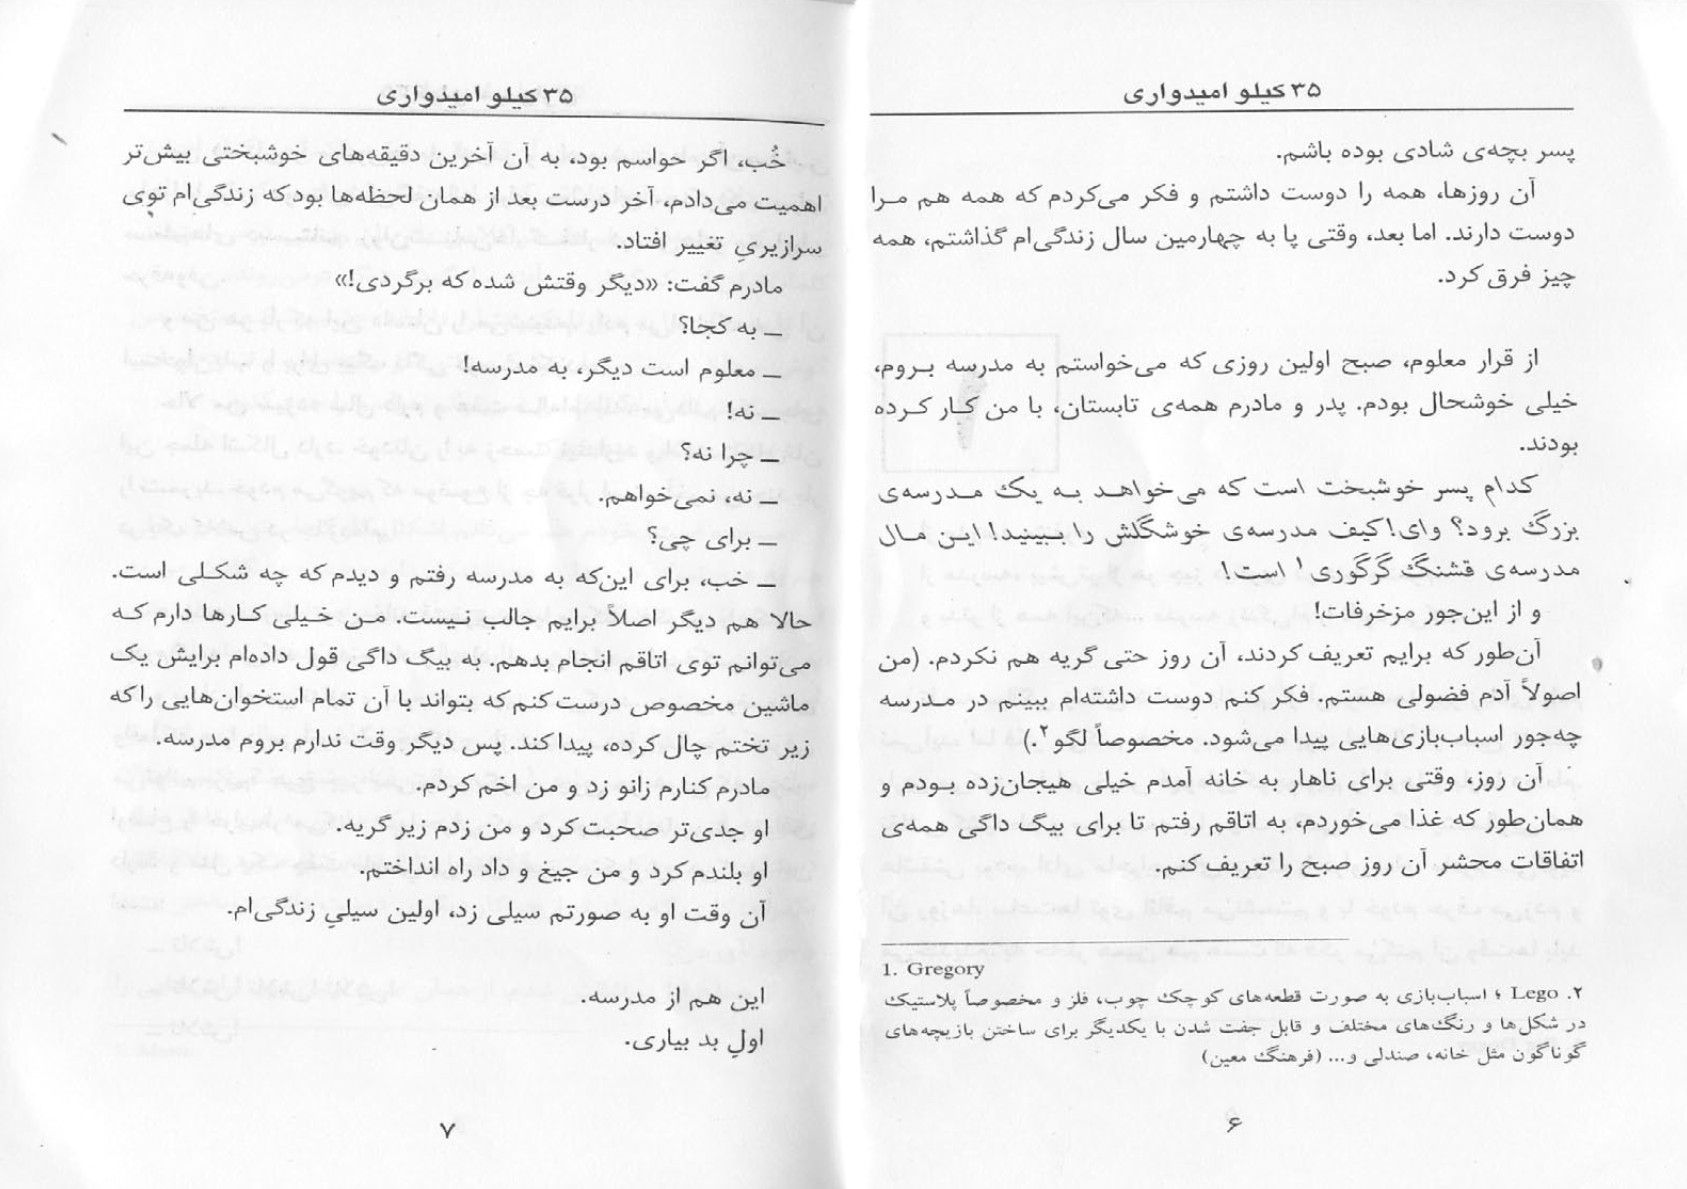 ۳۵ کیلو امیدواری
پسر بچه‌ی شادی بوده باشم.
آن روزها، همه را دوست داشتم و فکر می‌کردم که همه هم مرا
دوست دارند. اما بعد، وقتی پا به چهارمین سال زندگی‌ام گذاشتم، همه
چیز فرق کرد.
از قرار معلوم، صبح اولین روزی که می‌خواستم به مدرسه بروم،
خیلی خوشحال بودم. پدر و مادرم همه‌ی تابستان، با من کار کرده
بودند.
کدام پسر خوشبخت است که می‌خواهد به یک مدرسه‌ی
بزرگ برود؟ وای! کیف مدرسه‌ی خوشگلش را ببینید! این مال
مدرسه‌ی قشنگ گرگوری۱ است!
و از این‌جور مزخرفات!
آن‌طور که برایم تعریف کردند، آن روز حتی گریه هم نکردم. (من
اصولاً آدم فضولی هستم. فکر کنم دوست داشته‌ام ببینم در مدرسه
چه‌جور اسباب‌بازی‌هایی پیدا می‌شود. مخصوصاً لگو۲.)
آن روز، وقتی برای ناهار به خانه آمدم خیلی هیجان‌زده بودم و
همان‌طور که غذا می‌خوردم، به اتاقم رفتم تا برای بیگ داگی همه‌ی
اتفاقات محشر آن روز صبح را تعریف کنم.
1. Gregory
۲. Lego ؛ اسباب‌بازی به صورت قطعه‌های کوچک چوب، فلز و مخصوصاً پلاستیک
در شکل‌ها و رنگ‌های مختلف و قابل جفت شدن با یکدیگر برای ساختن بازیچه‌های
گوناگون مثل خانه، صندلی و... (فرهنگ معین)
۶
۳۵ کیلو امیدواری
خُب، اگر حواسم بود، به آن آخرین دقیقه‌های خوشبختی بیش‌تر
اهمیت می‌دادم، آخر درست بعد از همان لحظه‌ها بود که زندگی‌ام توی
سرازیریِ تغییر افتاد.
مادرم گفت: «دیگر وقتش شده که برگردی!»
ـ به کجا؟
ـ معلوم است دیگر، به مدرسه!
ـ نه!
ـ چرا نه؟
ـ نه، نمی‌خواهم.
ـ برای چی؟
ـ خب، برای این‌که به مدرسه رفتم و دیدم که چه شکلی است.
حالا هم دیگر اصلاً برایم جالب نیست. من خیلی کارها دارم که
می‌توانم توی اتاقم انجام بدهم. به بیگ داگی قول داده‌ام برایش یک
ماشین مخصوص درست کنم که بتواند با آن تمام استخوان‌هایی را که
زیر تختم چال کرده، پیدا کند. پس دیگر وقت ندارم بروم مدرسه.
مادرم کنارم زانو زد و من اخم کردم.
او جدی‌تر صحبت کرد و من زدم زیر گریه.
او بلندم کرد و من جیغ و داد راه انداختم.
آن وقت او به صورتم سیلی زد، اولین سیلیِ زندگی‌ام.
این هم از مدرسه.
اولِ بد بیاری.
۷